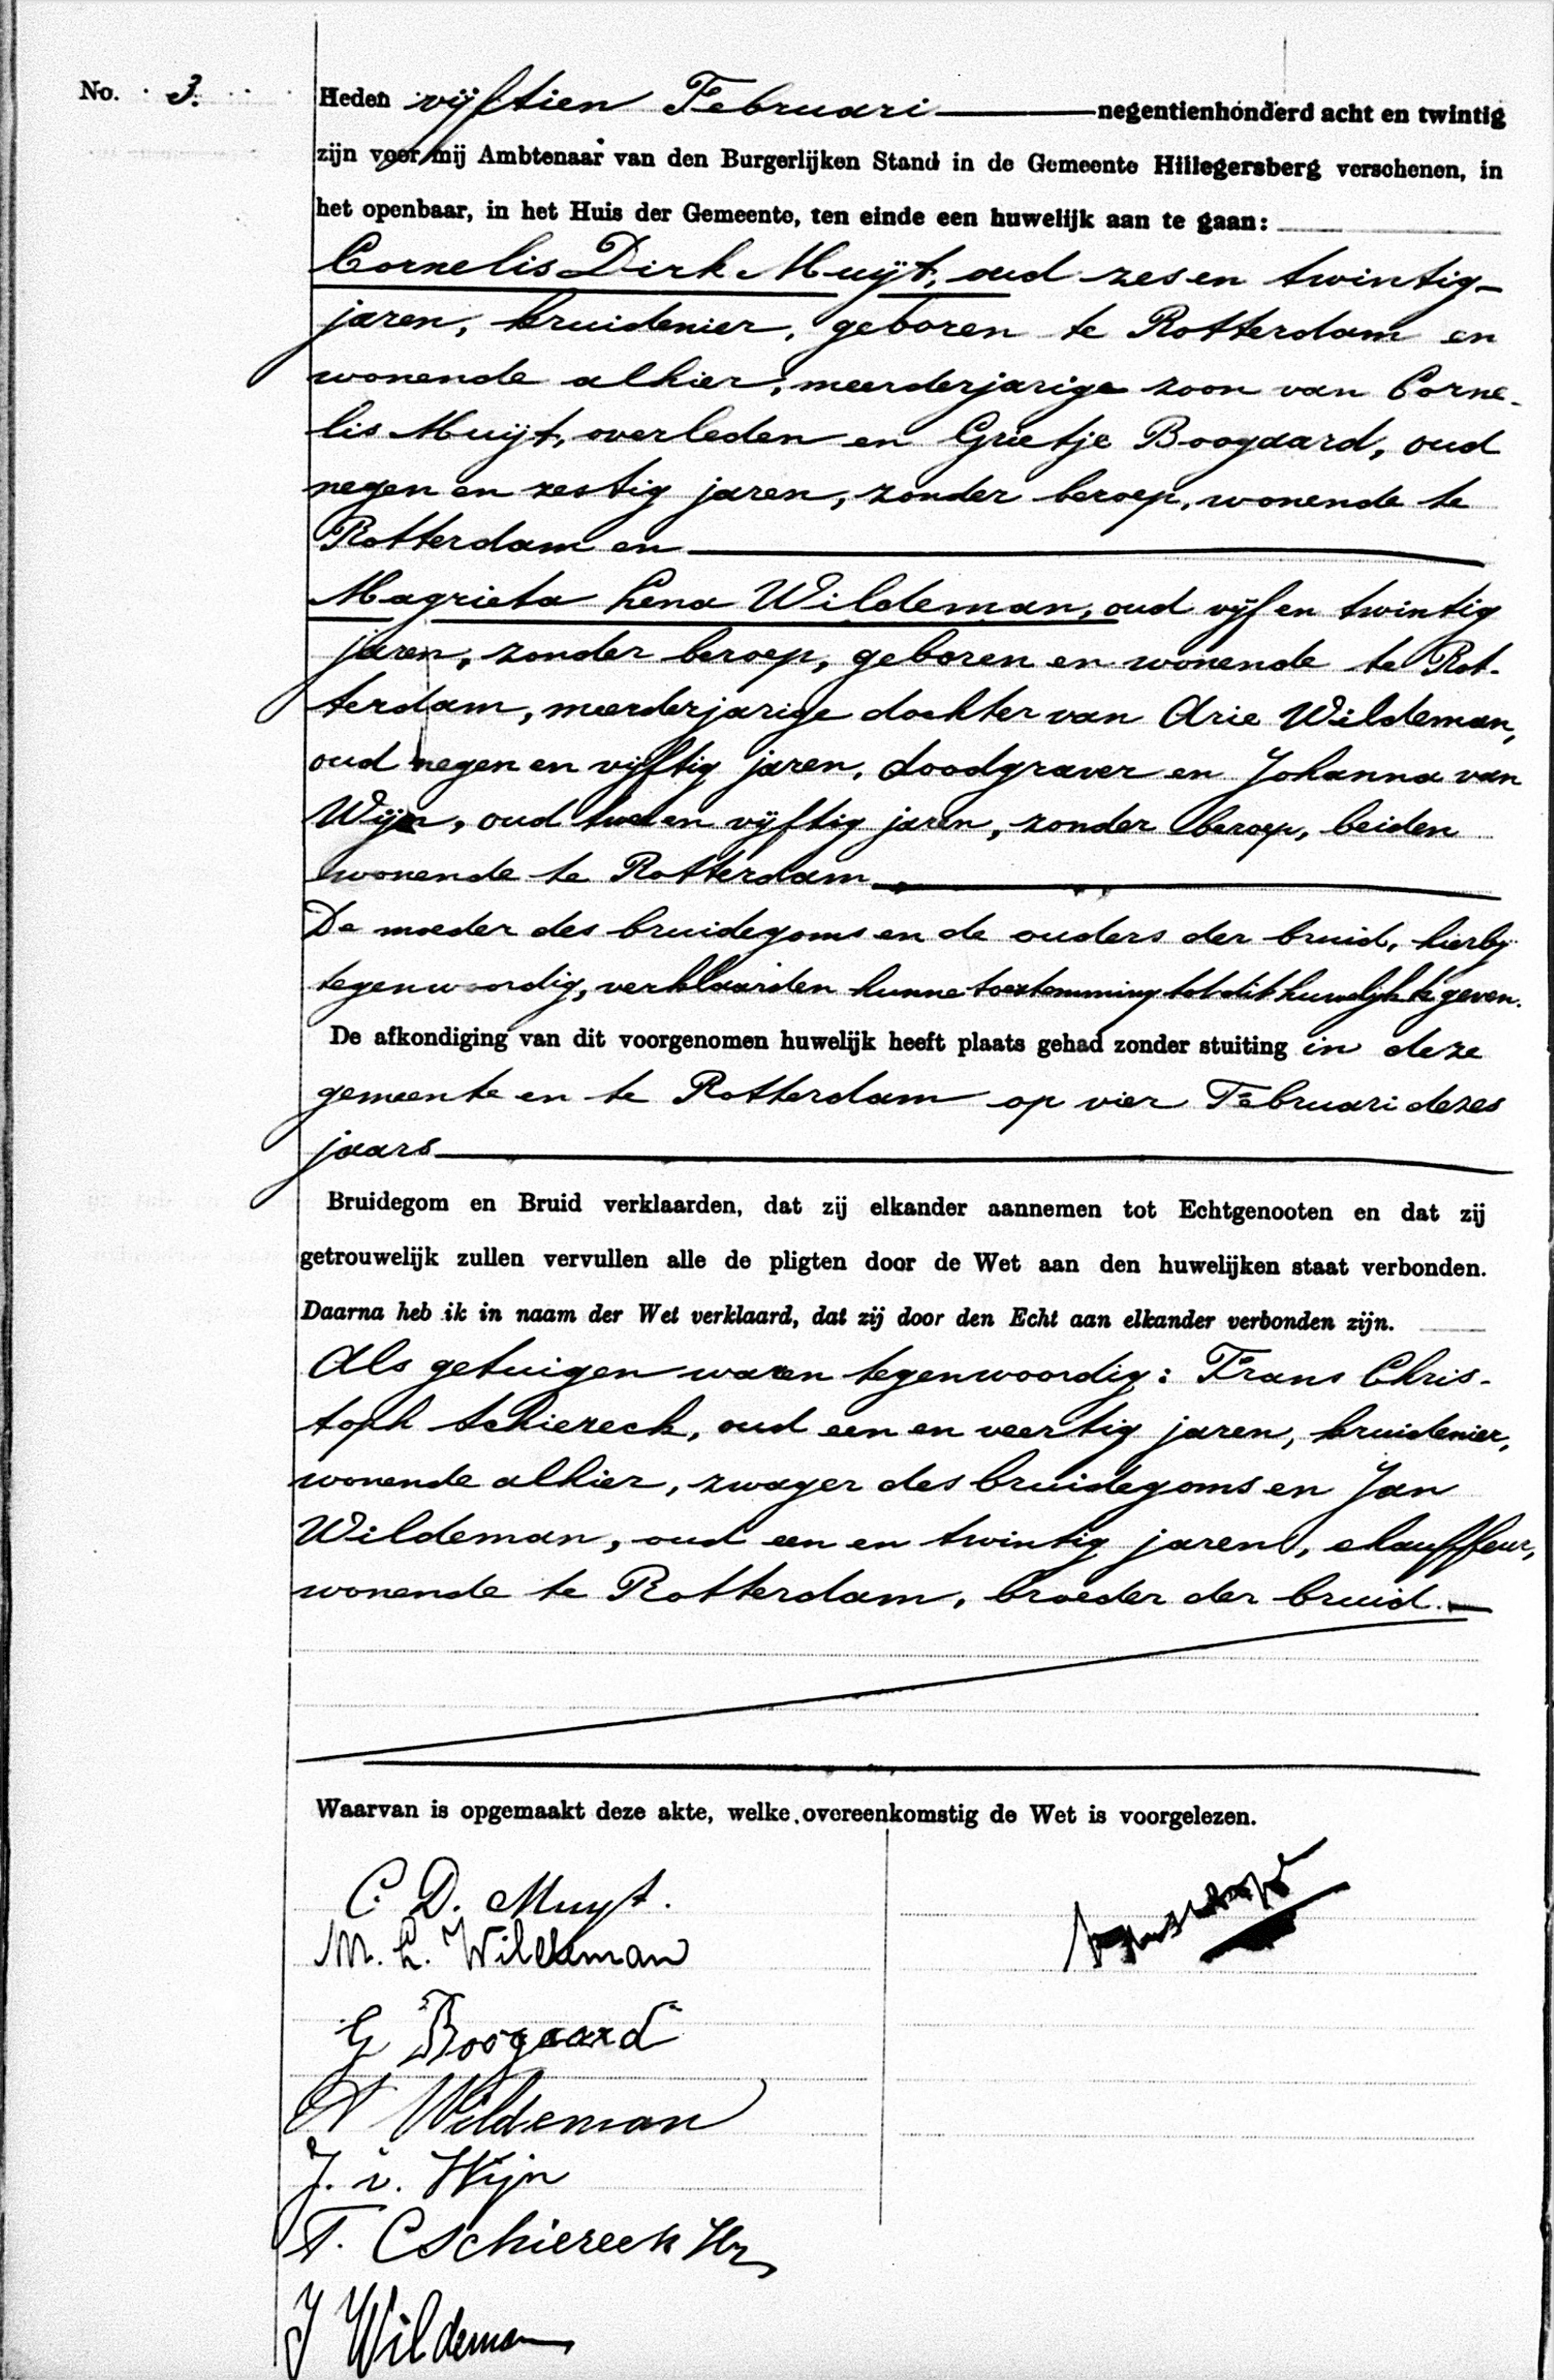 No. 3.
Heden vijftien Februari negentienhonderd acht en twintig
zijn voor mij Ambtenaar van den Burgerlijken Stand in de Gemeente Hillegersberg verschenen, in
het openbaar, in het Huis der Gemeente, ten einde een huwelijk aan te gaan:
Cornelis Dirk Muijt, oud zes en twintig
jaren, kruidenier, geboren te Rotterdam en
wonende alhier, meerderjarige zoon van Corne-
lis Muijt, overleden en Grietje Boogaard, oud
negen en zestig jaren, zonder beroep, wonende te
Rotterdam en
Magrieta Lena Wildeman, oud vijf en twintig
jaren, zonder beroep, geboren en wonende te Rot-
terdam, meerderjarige dochter van Arie Wildeman,
oud negen en vijftig jaren, doodgraver en Johanna van
Wijn, oud twee en vijftig jaren, zonder beroep, beiden
wonende te Rotterdam
De moeder des bruidegoms en de ouders der bruid, hierbij
tegenwoordig, verklaarden hunne toestemming tot dit huwelijk te geven.
De afkondiging van dit voorgenomen huwelijk heeft plaats gehad zonder stuiting in deze
gemeente en te Rotterdam op vier Februari dezes
jaars
Bruidegom en Bruid verklaarden, dat zij elkander aannemen tot Echtgenooten en dat zij
getrouwelijk zullen vervullen alle de pligten door de Wet aan den huwelijken staat verbonden.
Daarna heb ik in naam der Wet verklaard, dat zij door den Echt aan elkander verbonden zijn.
Als getuigen waren tegenwoordig: Frans Chris-
toph Schiereck, oud een en veertig jaren, kruidenier,
wonende alhier, zwager des bruidegoms en Jan
Wildeman, oud een en twintig jaren, chauffeur,
wonende te Rotterdam, broeder der bruid.
Waarvan is opgemaakt deze akte, welke overeenkomstig de Wet is voorgelezen.
C. D. Muyt.
M. L. Wildeman
G Boogaard
A Wildeman
J. v. Wijn
F. C Schiereck
J Wildeman